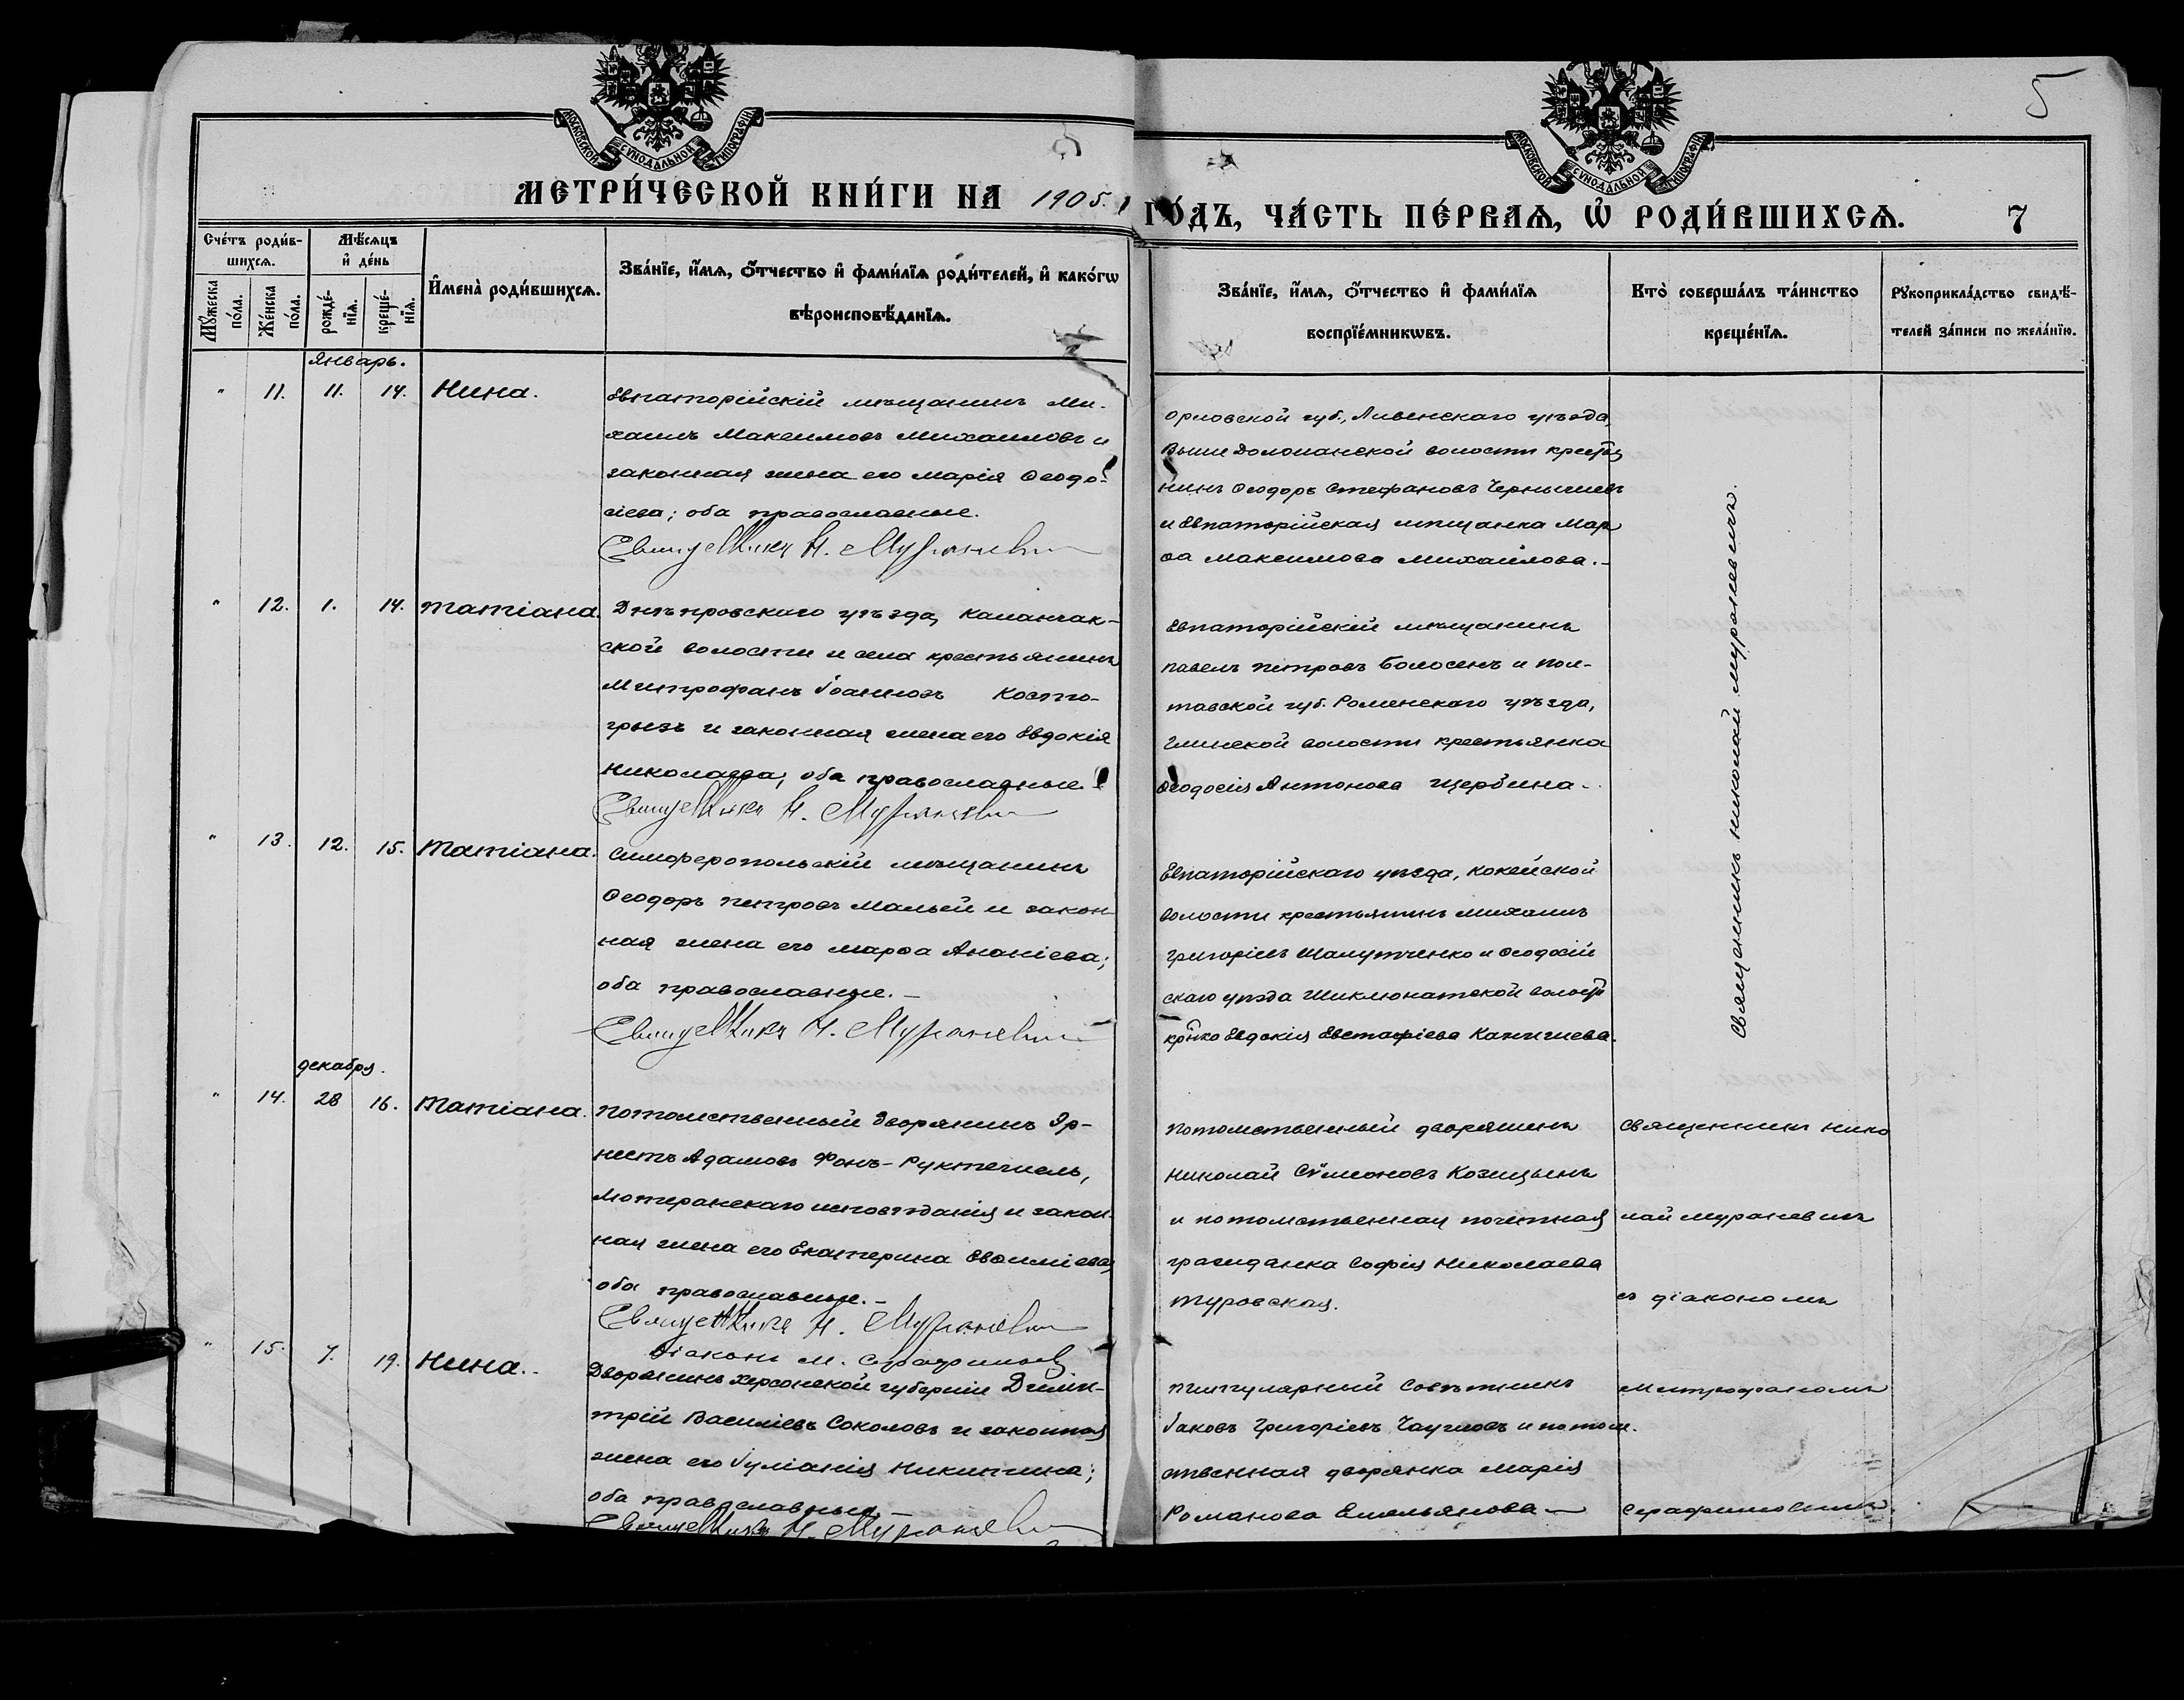 5
МОСКОВСКОЙ СѴНОДАЛЬНОЙ ТИПОГРАФІИ
МОСКОВСКОЙ СѴНОДАЛЬНОЙ ТИПОГРАФІИ
МЕТРИ́ЧЕСКОЙ КНИ́ГИ НА 1905.
ГО́ДЪ, ЧА́СТЬ ПЕ́РВАѦ, Ѡ҆ РОДИ́ВШИХСѦ. 7
Сче́тъ роди́в-
шихсѧ.
Мꙋ́жеска по́ла.
Же́нска по́ла.
Мѣ́сѧцъ
и҆ де́нь
рожде́-
нїѧ.
креще́-
нїѧ.
И҆мена̀ роди́вшихсѧ.
Зва́нїе, и҆́мѧ, ѻ҆́тчество и҆ фами́лїѧ роди́телей, и҆ како́гѡ
вѣроисповѣ́данїѧ.
Зва́нїе, и҆́мѧ, ѻ҆́тчество и҆ фами́лїѧ
воспрїе́мникѡвъ.
Кто̀ соверша́лъ та́инство
креще́нїѧ.
Рꙋкоприкла́дство свидѣ́-
телей за́писи по жела́нїю.
Январь.
" 11. 11. 14. Нина.
Евпаторійскій мѣщанинъ Ми-
хаилъ Максимовъ Михаиловъ и
законная жена его Марія Ѳеодо-
сіева; оба православные.
Священникъ Н. Мураневичъ
Орловской губ., Ливенскаго уѣзда,
Доломанской волости крестья
нинъ Ѳеодоръ Стефановъ Чернышевъ
и Евпаторійская мѣщанка Мар
ѳа Максимова Михайлова.-
Священникъ Николай Мураневичъ.
" 12. 1. 14. Татіана.
Днѣпровскаго уѣзда, Каланчак-
ской волости и села крестьянинъ
Митрофанъ Іоанновъ Косто-
грызъ и законная жена его Евдокія
Николаева; оба православные.
Священникъ Н. Мураневичъ
Евпаторійскій мѣщанинъ
Павелъ Петровъ Болосенъ и Пол-
тавской губ. Роменскаго уѣзда,
Глинской волости крестьянка
Ѳеодосія Антонова Щербина.
" 13. 12. 15. Татіана.
Симферопольскій мѣщанинъ
Ѳеодоръ Петровъ Малый и закон-
ная жена его Марѳа Ананіева;
оба православные.-
Священникъ Н. Мураневичъ
Евпаторійскаго уѣзда, Кокейской
волости крестьянинъ Михаилъ
Григоріевъ и Ѳеодосій
скаго уѣзда волости
Евдокія Евстафіева
декабря.
" 14. 28 16. Татіана.
Потомственный дворянинъ Эр-
нестъ Адамовъ Фонъ-Руктешель,
Лютеранскаго исповѣданія и закон-
ная жена его Екатерина Евѳиміева,
оба православные.-
Священникъ Н. Мураневичъ
Діаконъ М. Серафимовъ
Потомственный дворянинъ
Николай Сѵмеоновъ Козицынъ
и потомственная почетная
гражданка Софія Николаева
Туровская.
Священникъ Нико
лай Мураневичъ
съ діакономъ
" 15. 7. 19. Нина.-
Дворянинъ Херсонской губерніи Дими-
трій Василіевъ Соколовъ и законная
жена его Іуліанія Никитина;
оба православные.-
Священникъ Н. Мураневичъ
Титулярный Совѣтникъ
Іаковъ Григоріевъ и потом.
ственная дворянка Марія
Романова Емельянова-
Митрофаномъ
Серафимовымъ.